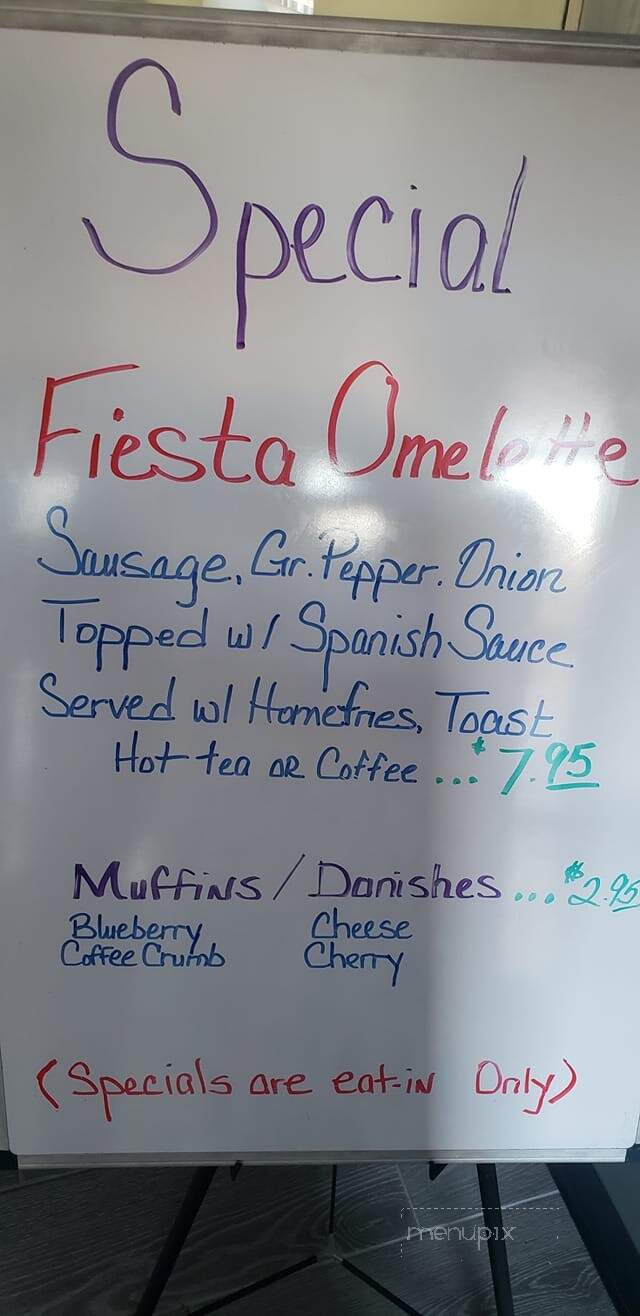 Special
Fiesta Omelette
Sausage, Gr. Pepper. Onion
Topped w/ Spanish Sauce
Served w/ Homefries, Toast
Hot tea OR Coffee ... $7.95
Muffins / Danishes ... $2.95
Blueberry Cheese
Coffee Crumb Cherry
(Specials are eat-in Only)
menupix